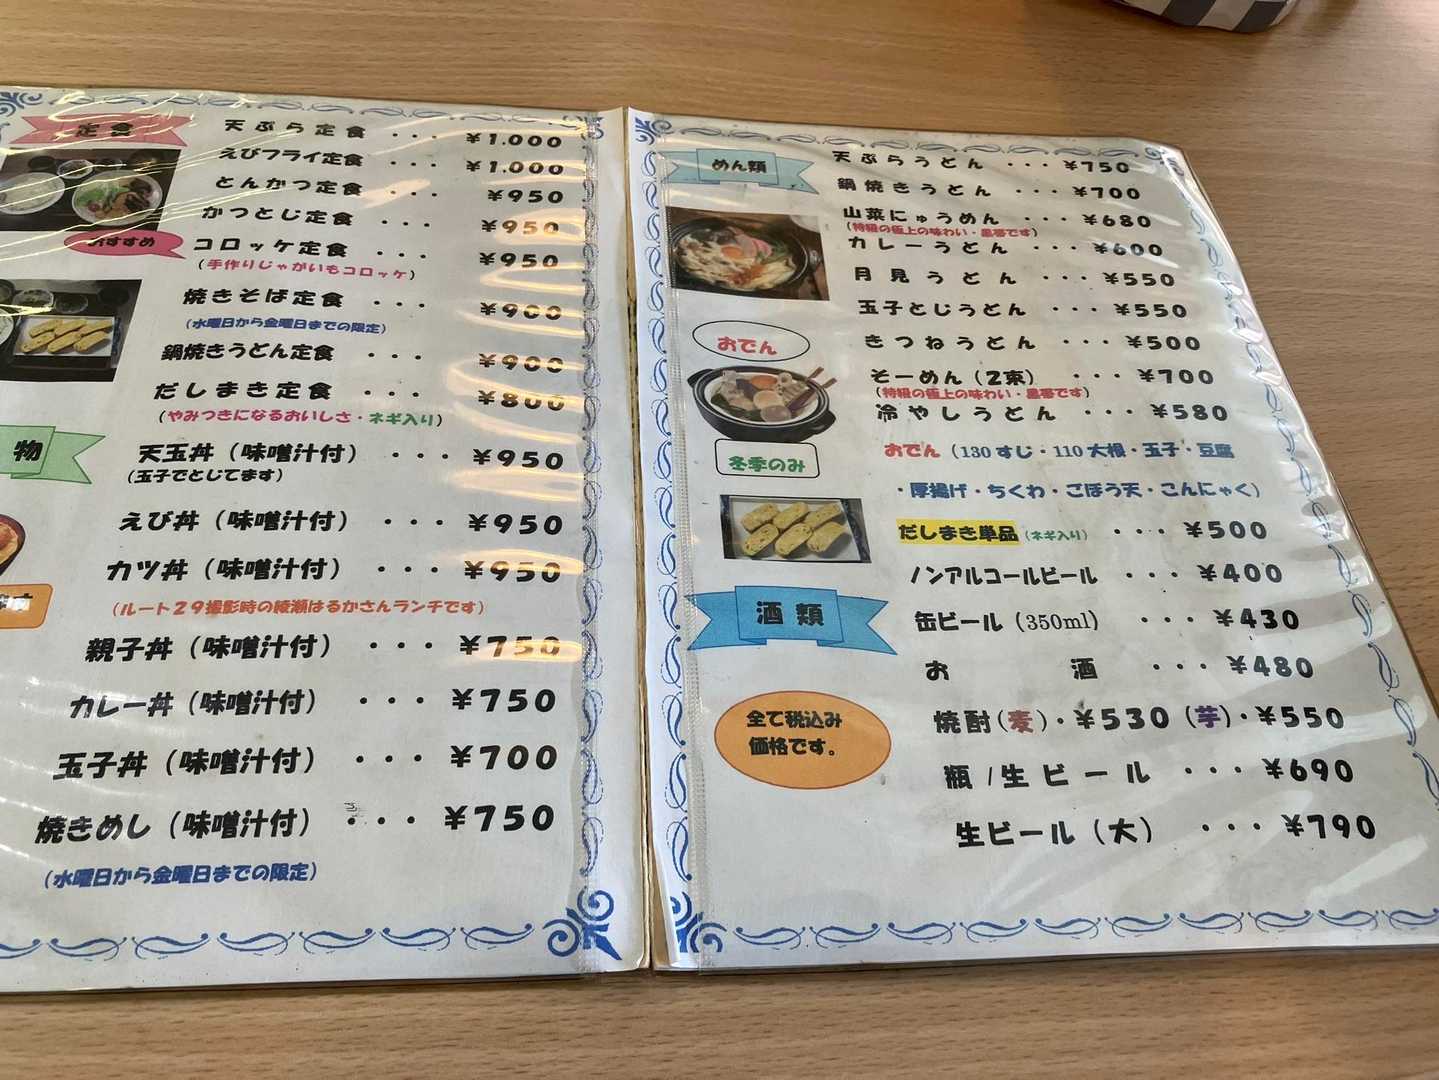 定食
天ぷら定食 ・・・ ¥1.000
えびフライ定食 ・・・ ¥1.000
とんかつ定食 ・・・ ¥950
かつとじ定食 ・・・ ¥950
おすすめ
コロッケ定食 ・・・ ¥950
(手作りじゃがいもコロッケ)
焼きそば定食 ・・・ ¥900
(水曜日から金曜日までの限定)
鍋焼きうどん定食 ・・・ ¥900
だしまき定食 ・・・ ¥800
(やみつきになるおいしさ・ネギ入り)
物
天玉丼(味噌汁付) ・・・ ¥950
(玉子でとじてます)
えび丼(味噌汁付) ・・・ ¥950
カツ丼(味噌汁付) ・・・ ¥950
(ルート29撮影時の綾瀬はるかさんランチです)
親子丼(味噌汁付) ・・・ ¥750
カレー丼(味噌汁付) ・・・ ¥750
玉子丼(味噌汁付) ・・・ ¥700
焼きめし(味噌汁付) ・・・ ¥750
(水曜日から金曜日までの限定)
めん類
天ぷらうどん ・・・ ¥750
鍋焼きうどん ・・・ ¥700
山菜にゅうめん ・・・ ¥680
(特級の極上の味わい・黒帯です)
カレーうどん ・・・ ¥600
月見うどん ・・・ ¥550
玉子とじうどん ・・・ ¥550
きつねうどん ・・・ ¥500
そーめん(2束) ・・・ ¥700
(特級の極上の味わい・黒帯です)
冷やしうどん ・・・ ¥580
おでん
冬季のみ
おでん(130すじ・110大根・玉子・豆腐
・厚揚げ・ちくわ・ごぼう天・こんにゃく)
だしまき単品(ネギ入り) ・・・ ¥500
ノンアルコールビール ・・・ ¥400
酒類
缶ビール(350ml) ・・・ ¥430
お酒 ・・・ ¥480
焼酎(麦)・¥530(芋)・¥550
瓶/生ビール ・・・ ¥690
生ビール(大) ・・・ ¥790
全て税込み
価格です。